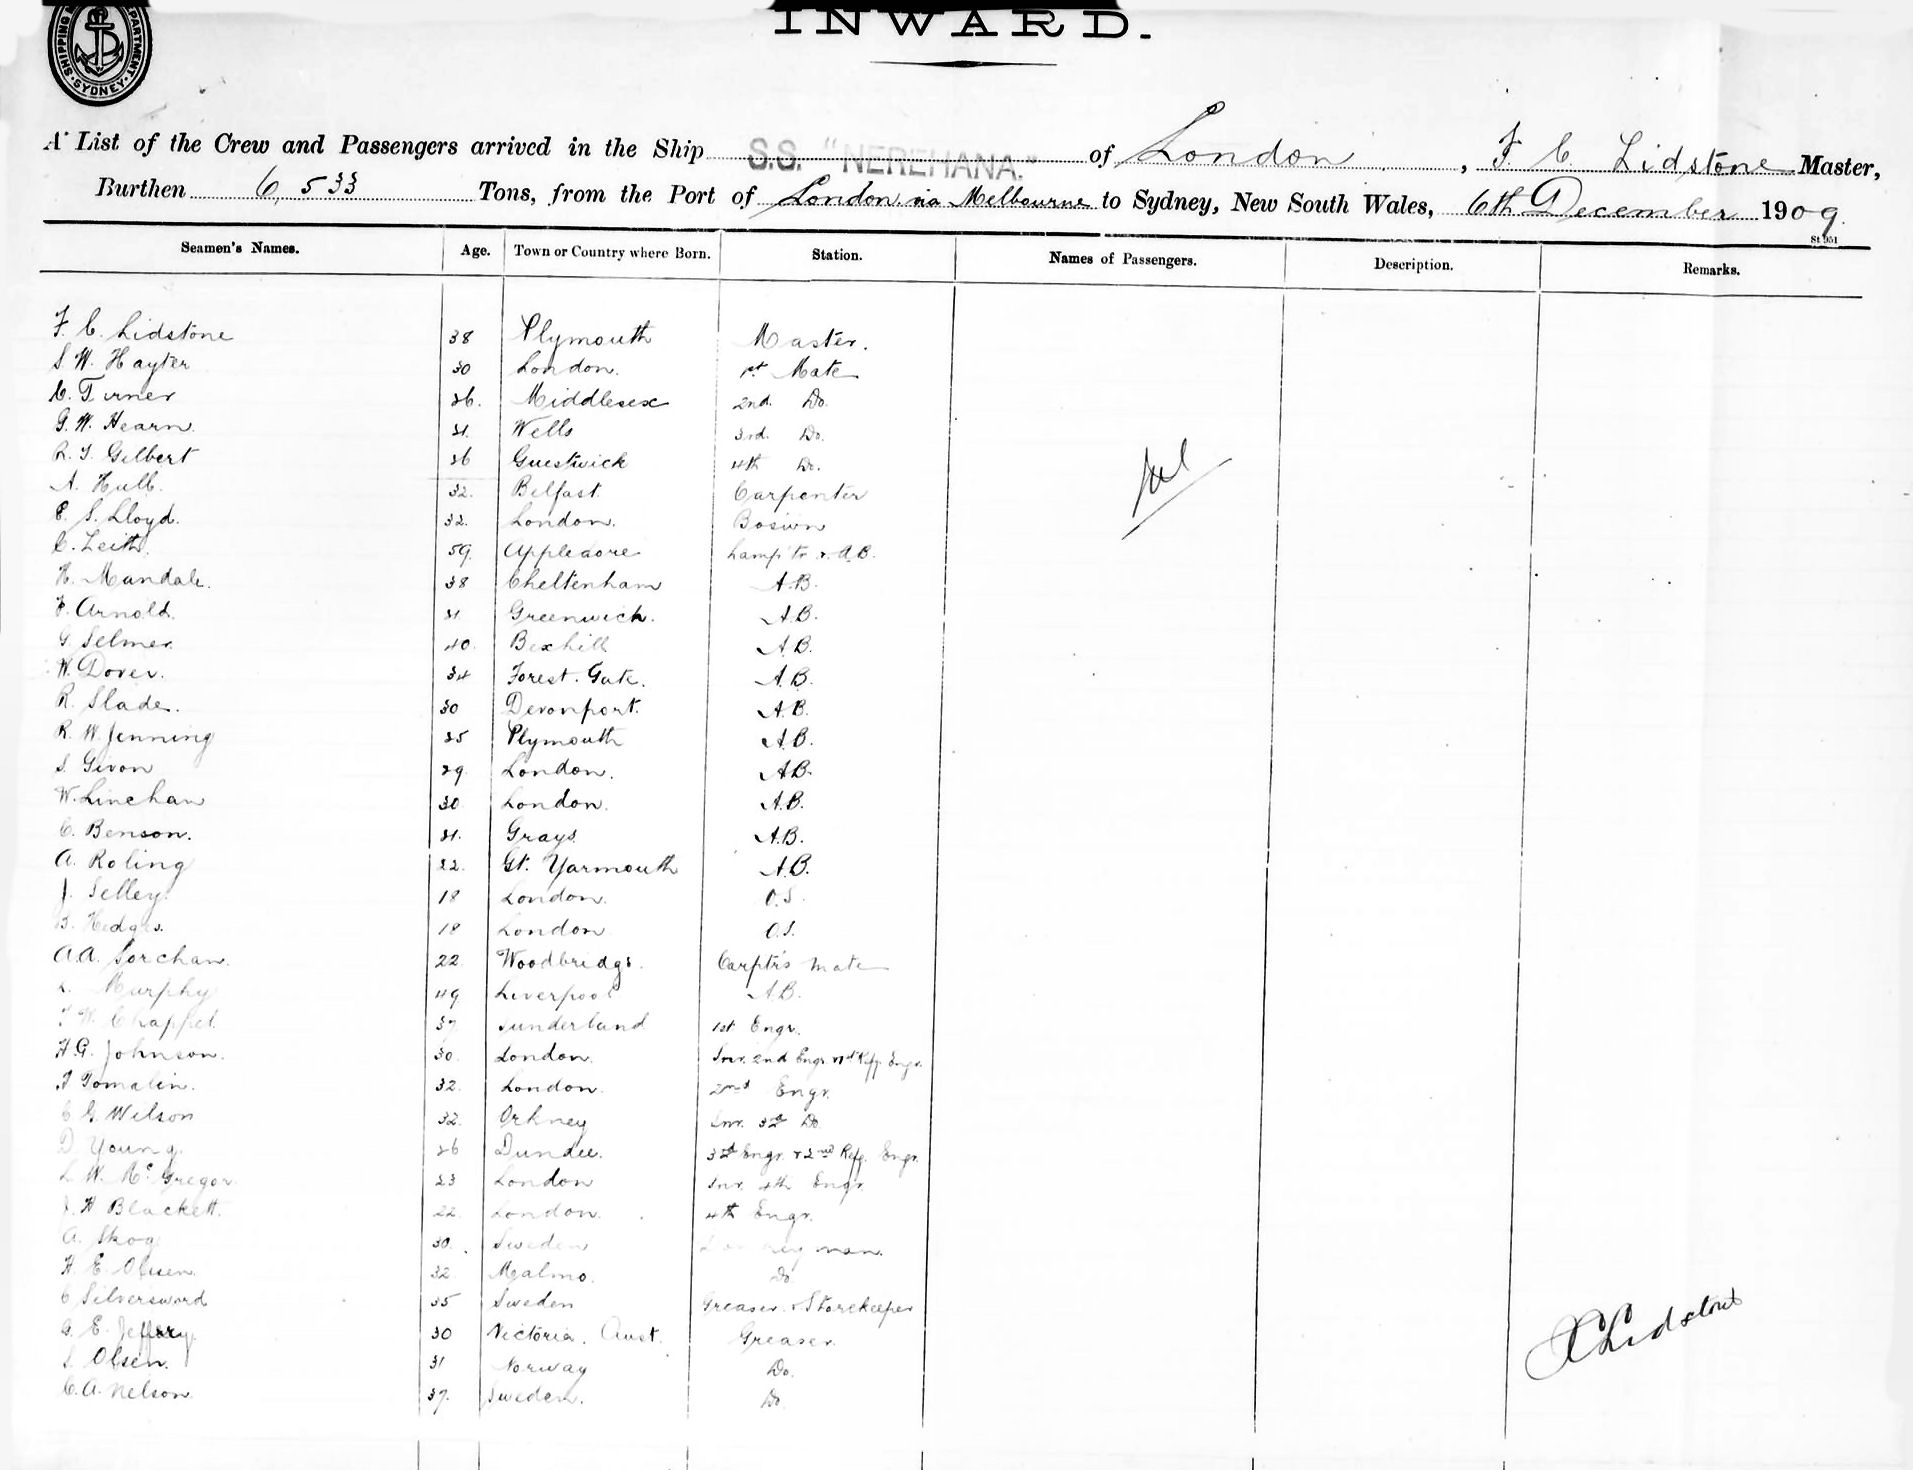 SHIPPING DEPARTMENT SYDNEY
INWARD.
A List of the Crew and Passengers arrived in the Ship S.S. "NEREHANA." of London, F. C. Lidstone Master,
Burthen 6,533 Tons, from the Port of London via Melbourne to Sydney, New South Wales, 6th December 1909.
St 951
Seamen's Names. Age. Town or Country where Born. Station. Names of Passengers. Description. Remarks.
F. C. Lidstone 38 Plymouth Master.
S. W. Hayter 30 London. 1st Mate
C. Turner 26. Middlesex 2nd. Do.
G. W. Hearn. 31. Wells 3rd. Do.
R. T. Gilbert 26 Guestwick 4th Do.
A. Hull. 32. Belfast. Carpenter
E. S. Lloyd. 32. London. Bosun
C. Leith. 59. Appledore Lamp tr & A.B.
H. Mandale. 38 Cheltenham A.B.
F. Arnold. 21. Greenwich. A.B.
G. Selmer 40. Bexhill A.B.
W. Dover. 34 Forest. Gate. A.B.
R. Slade. 30 Devonport. A.B.
R. W. Jenning 25 Plymouth A.B.
S. Givon 29. London. A.B.
W. Linehan 30 London. A.B.
C. Benson. 21. Grays. A.B.
A. Roling 22. Gt. Yarmouth A.B.
J. Selley. 18 London. O.S.
Hedges. 18 London O.S.
A.A. Sorchan. 22 Woodbridge. Carptr's mate
Murphy 49 Liverpool A.B.
W. Chappel. 37. Sunderland 1st Engr.
H.G. Johnson. 30. London. Snr. 2nd Engr & 1st Refg. Engr.
Tomalin. 32. London. 2nd Engr.
C G. Wilson 32. Orkney Snr. 3rd Do
D. Young. 26 Dundee. 3rd Engr. & 2nd Refg. Engr.
L. W. McGregor 23 London Snr. 4th Engr.
J. H Blackett. 22. London. 4th Engr.
A. Skog 30. Sweden Donkeyman.
H. E. Olsen. 32 Malmo. Do
C Silversword 35 Sweden Greaser. & Storekeeper
G. E. Jeffery. 30 Victoria. Aust. Greaser.
S. Olsen. 31 Norway Do.
C. A. Nelson. 37. Sweden. Do.
Nil
F C Lidstone